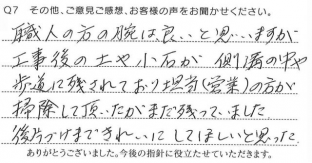 Q7 その他、ご意見ご感想、お客様の声をお聞かせください。
職人の方の腕は良いと思いますが
工事後の土や小石が側溝の中や
歩道に残されており担当(営業)の方が
掃除して頂いたがまだ残っていました
後片づけまできれいにしてほしいと思った
ありがとうございました。今後の指針に役立たせていただきます。